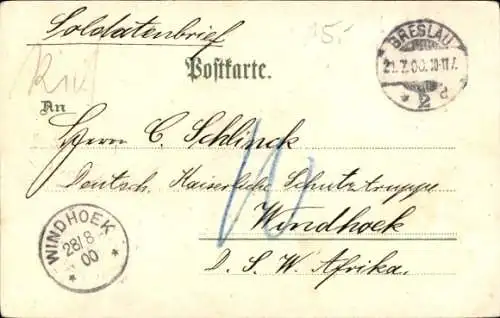 Soldatenbrief
15.-
BRESLAU
21.7.00.10-11V.
* 2 d
Postkarte.
An
Herrn C. Schlinck
Deutsch. Kaiserliche Schutztruppe
Windhoek
D. S. W. Afrika.
WINDHOEK
28/8
00
* *